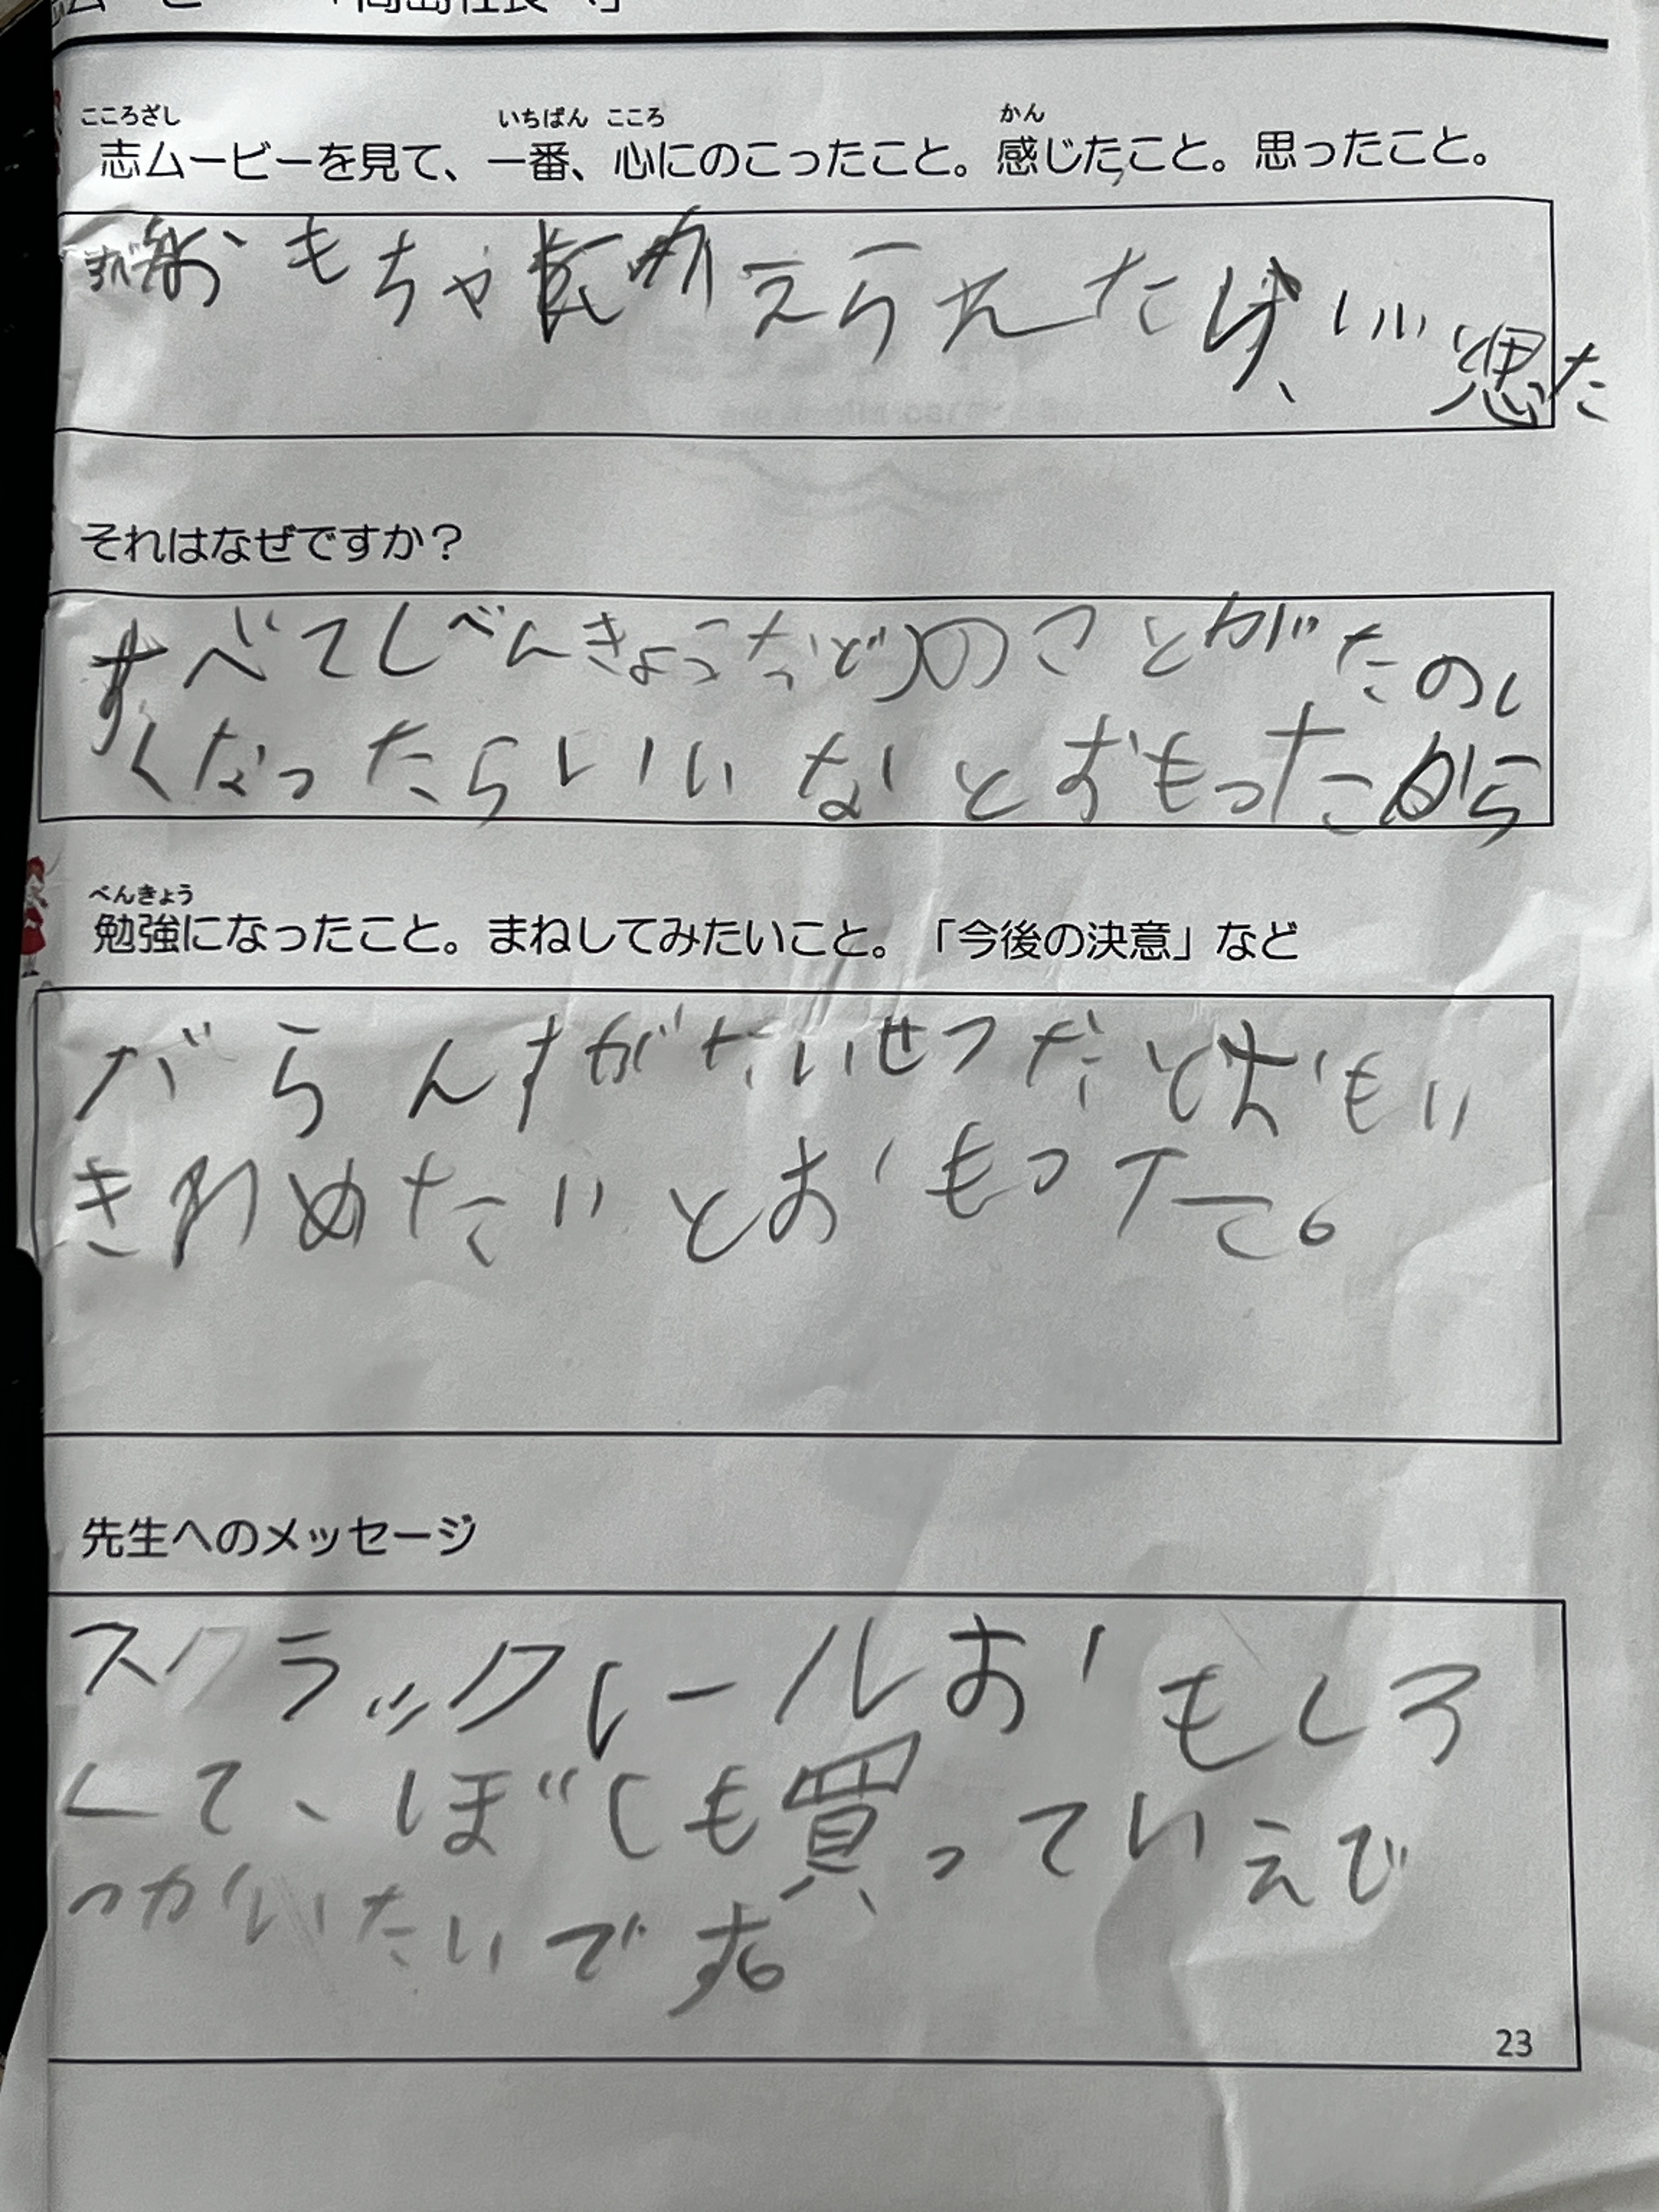 こころざし いちばん こころ かん
志ムービーを見て、一番、心にのこったこと。感じたこと。思ったこと。
おもちゃ えらんたば、いい思た
それはなぜですか？
すべて(べんきょうなど)のことがたのし
くなったらいいなとおもったから
べんきょう
勉強になったこと。まねしてみたいこと。「今後の決意」など
ばらんすがたいせつだとおもい
きわめたいとおもった。
先生へのメッセージ
スクラックレールおもしろ
くて、ぼくも買っていえで
つかいたいです。
23